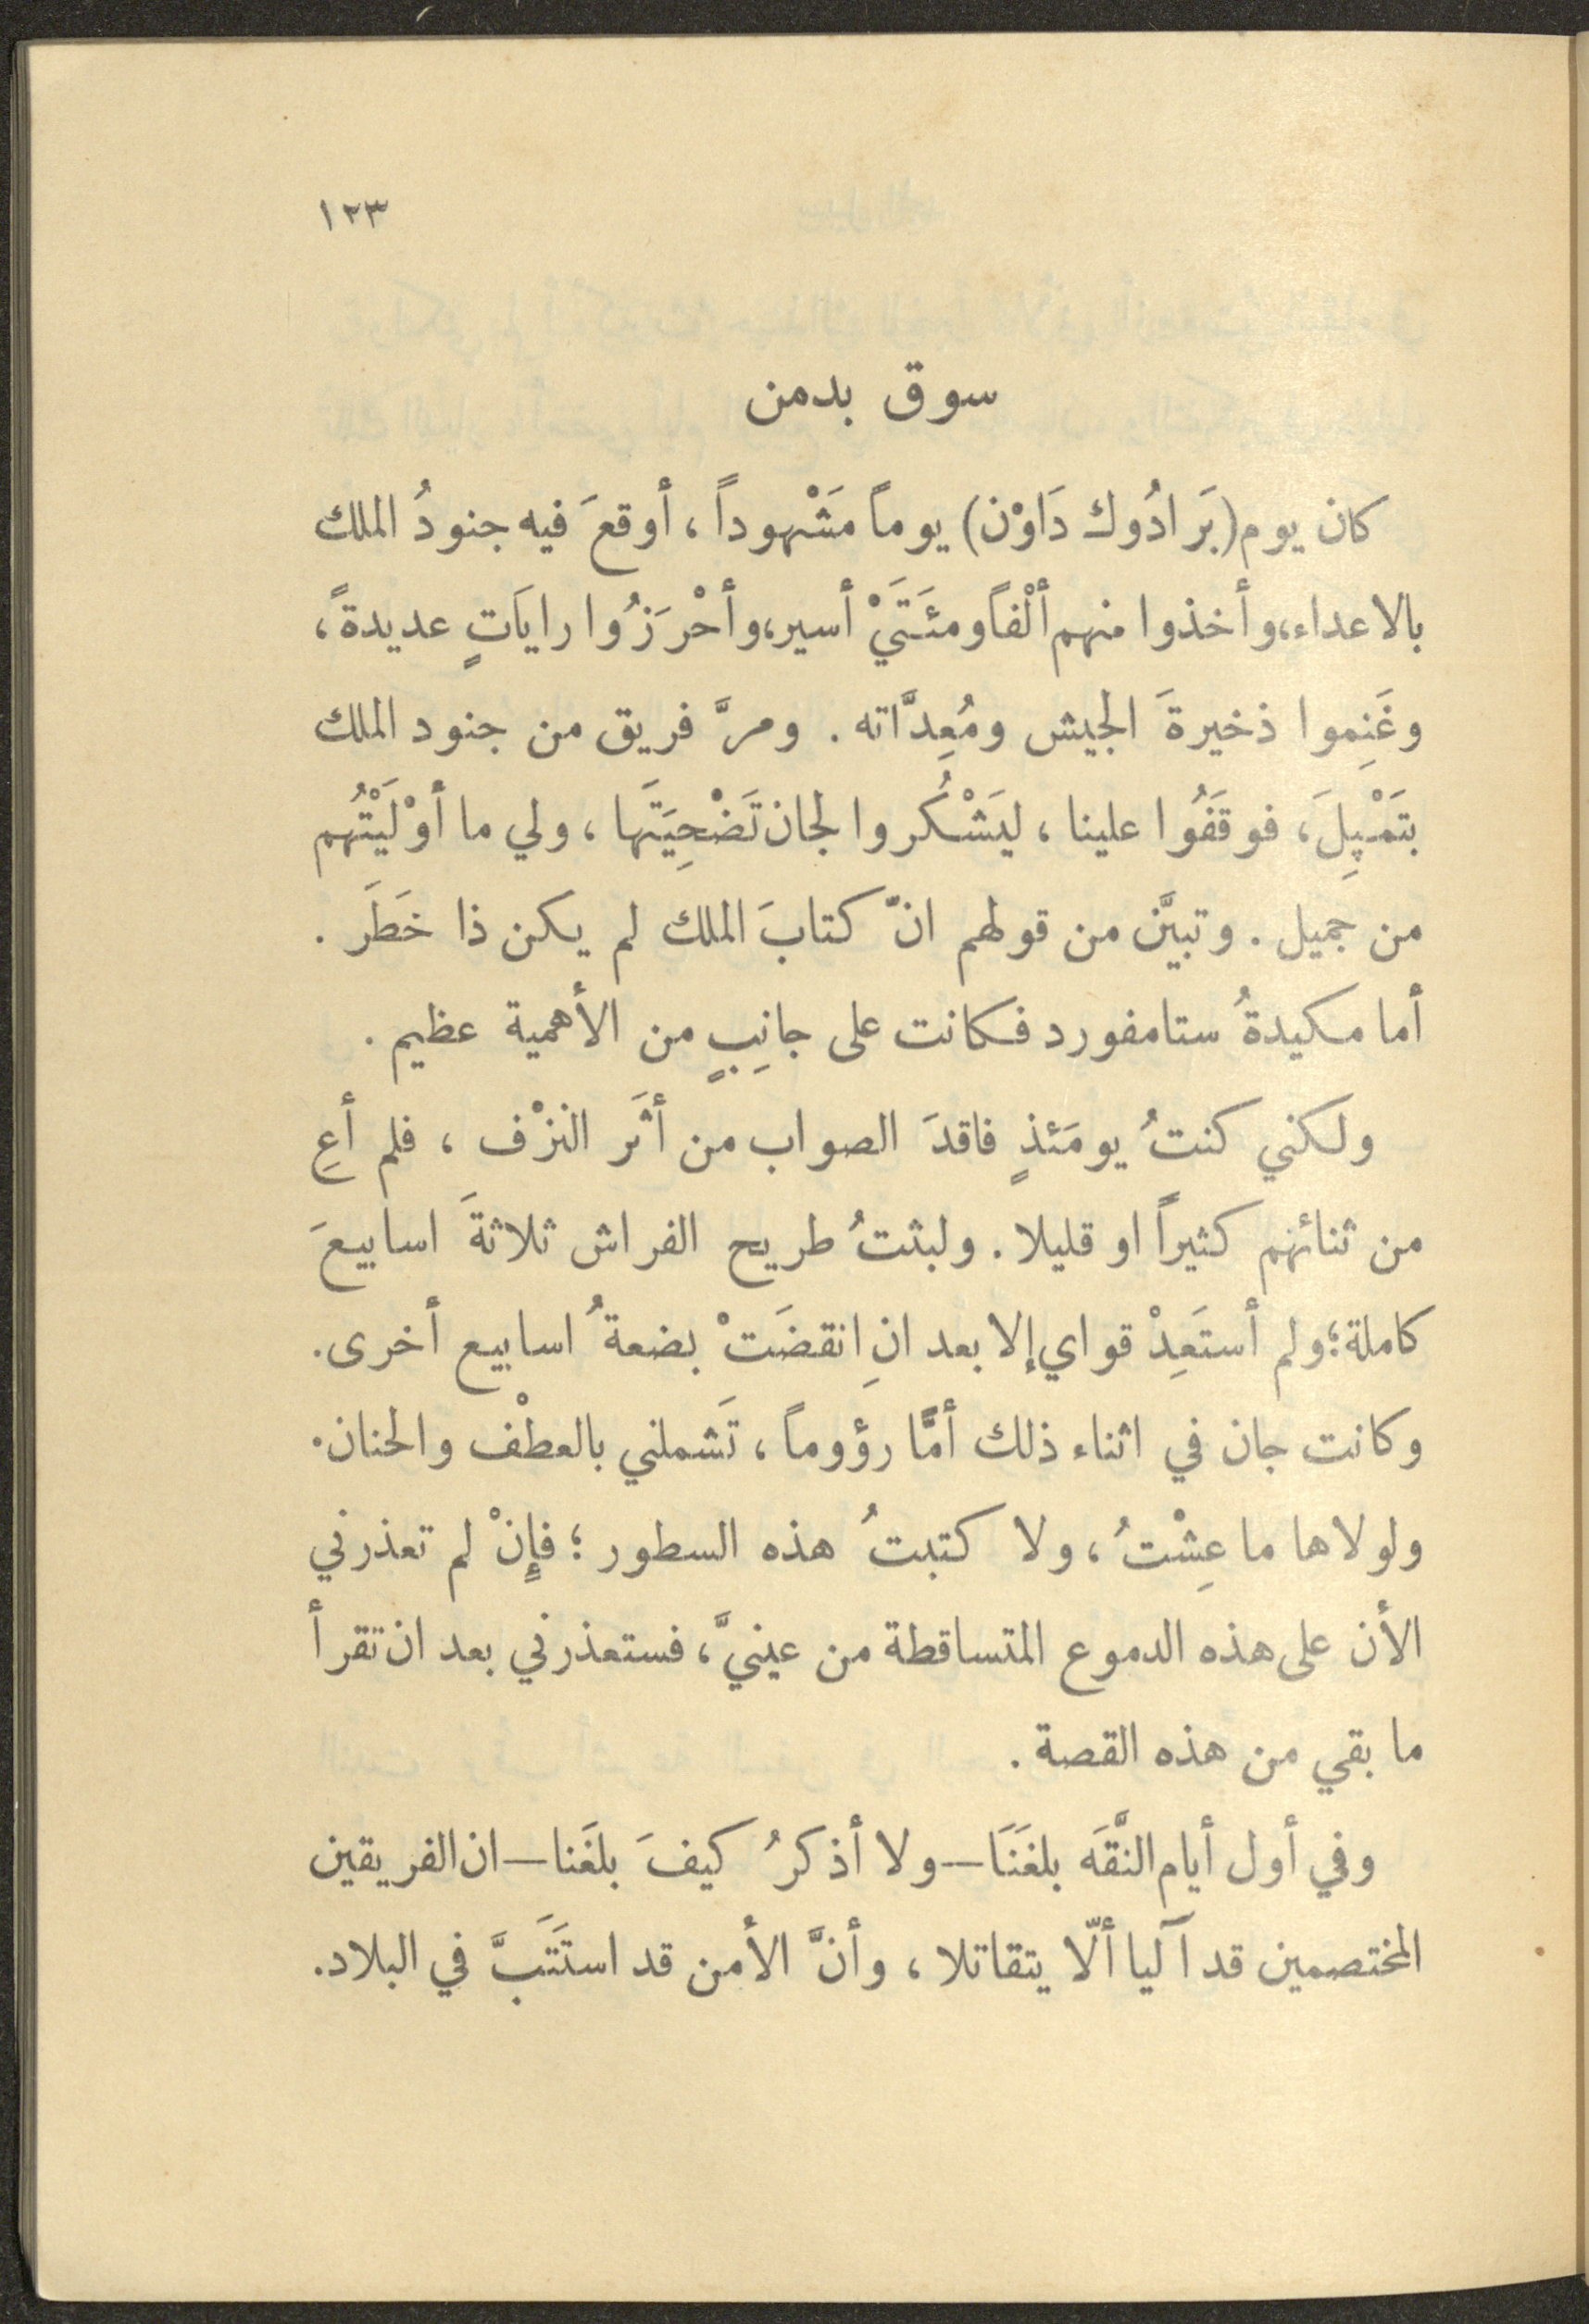 ١٢٣
سوق بدمن
كان يوم (بَرادُوك دَاوْن) يوماً مَشْهوداً ، أوقعَ فيه جنودُ الملك
بالاعداء، وأخذوا منهم ألْفاً ومئَتَيْ أسير، وأحْرَزُوا راياَتٍ عديدةً ،
وغَنِموا ذخيرةَ الجيش ومُعِدَّاته . ومرَّ فريق من جنود الملك
بتَمْپِلَ ، فوقَفُوا علينا ، ليَشْكُروا لجان تَضْحِيَتَها ، ولي ما أوْلَيْتُهم
من جميل . وتبيَّن من قولهم انّ كتابَ الملك لم يكن ذا خَطَر .
أما مكيدةُ ستامفورد فكانت على جانِبٍ من الأهمية عظيم .
ولكني كنتُ يومَئذٍ فاقدَ الصواب من أثَر النزْف ، فلم أعِ
من ثنائهم كثيراً او قليلا . ولبثتُ طريح الفراش ثلاثةَ اسابيعَ
كاملة ؛ ولم أستَعِدْ قواي إلا بعد انِ انقضَتْ بضعةُ اسابيع أخرى .
وكانت جان في اثناء ذلك أمًّا رؤوماً ، تَشملني بالعطْف والحنان .
ولولاها ما عِشْتُ ، ولا كتبتُ هذه السطور ؛ فإِنْ لم تعذرني
الأن على هذه الدموع المتساقطة من عينيَّ ، فستعذرني بعد ان تقرأ
ما بقي من هذه القصة .
وفي أول أيام النَّقَه بلغَنَا — ولا أذكرُ كيفَ بلغَنا — ان الفريقين
المختصمين قد آليا ألّا يتقاتلا ، وأنَّ الأمن قد استَتَبَّ في البلاد .